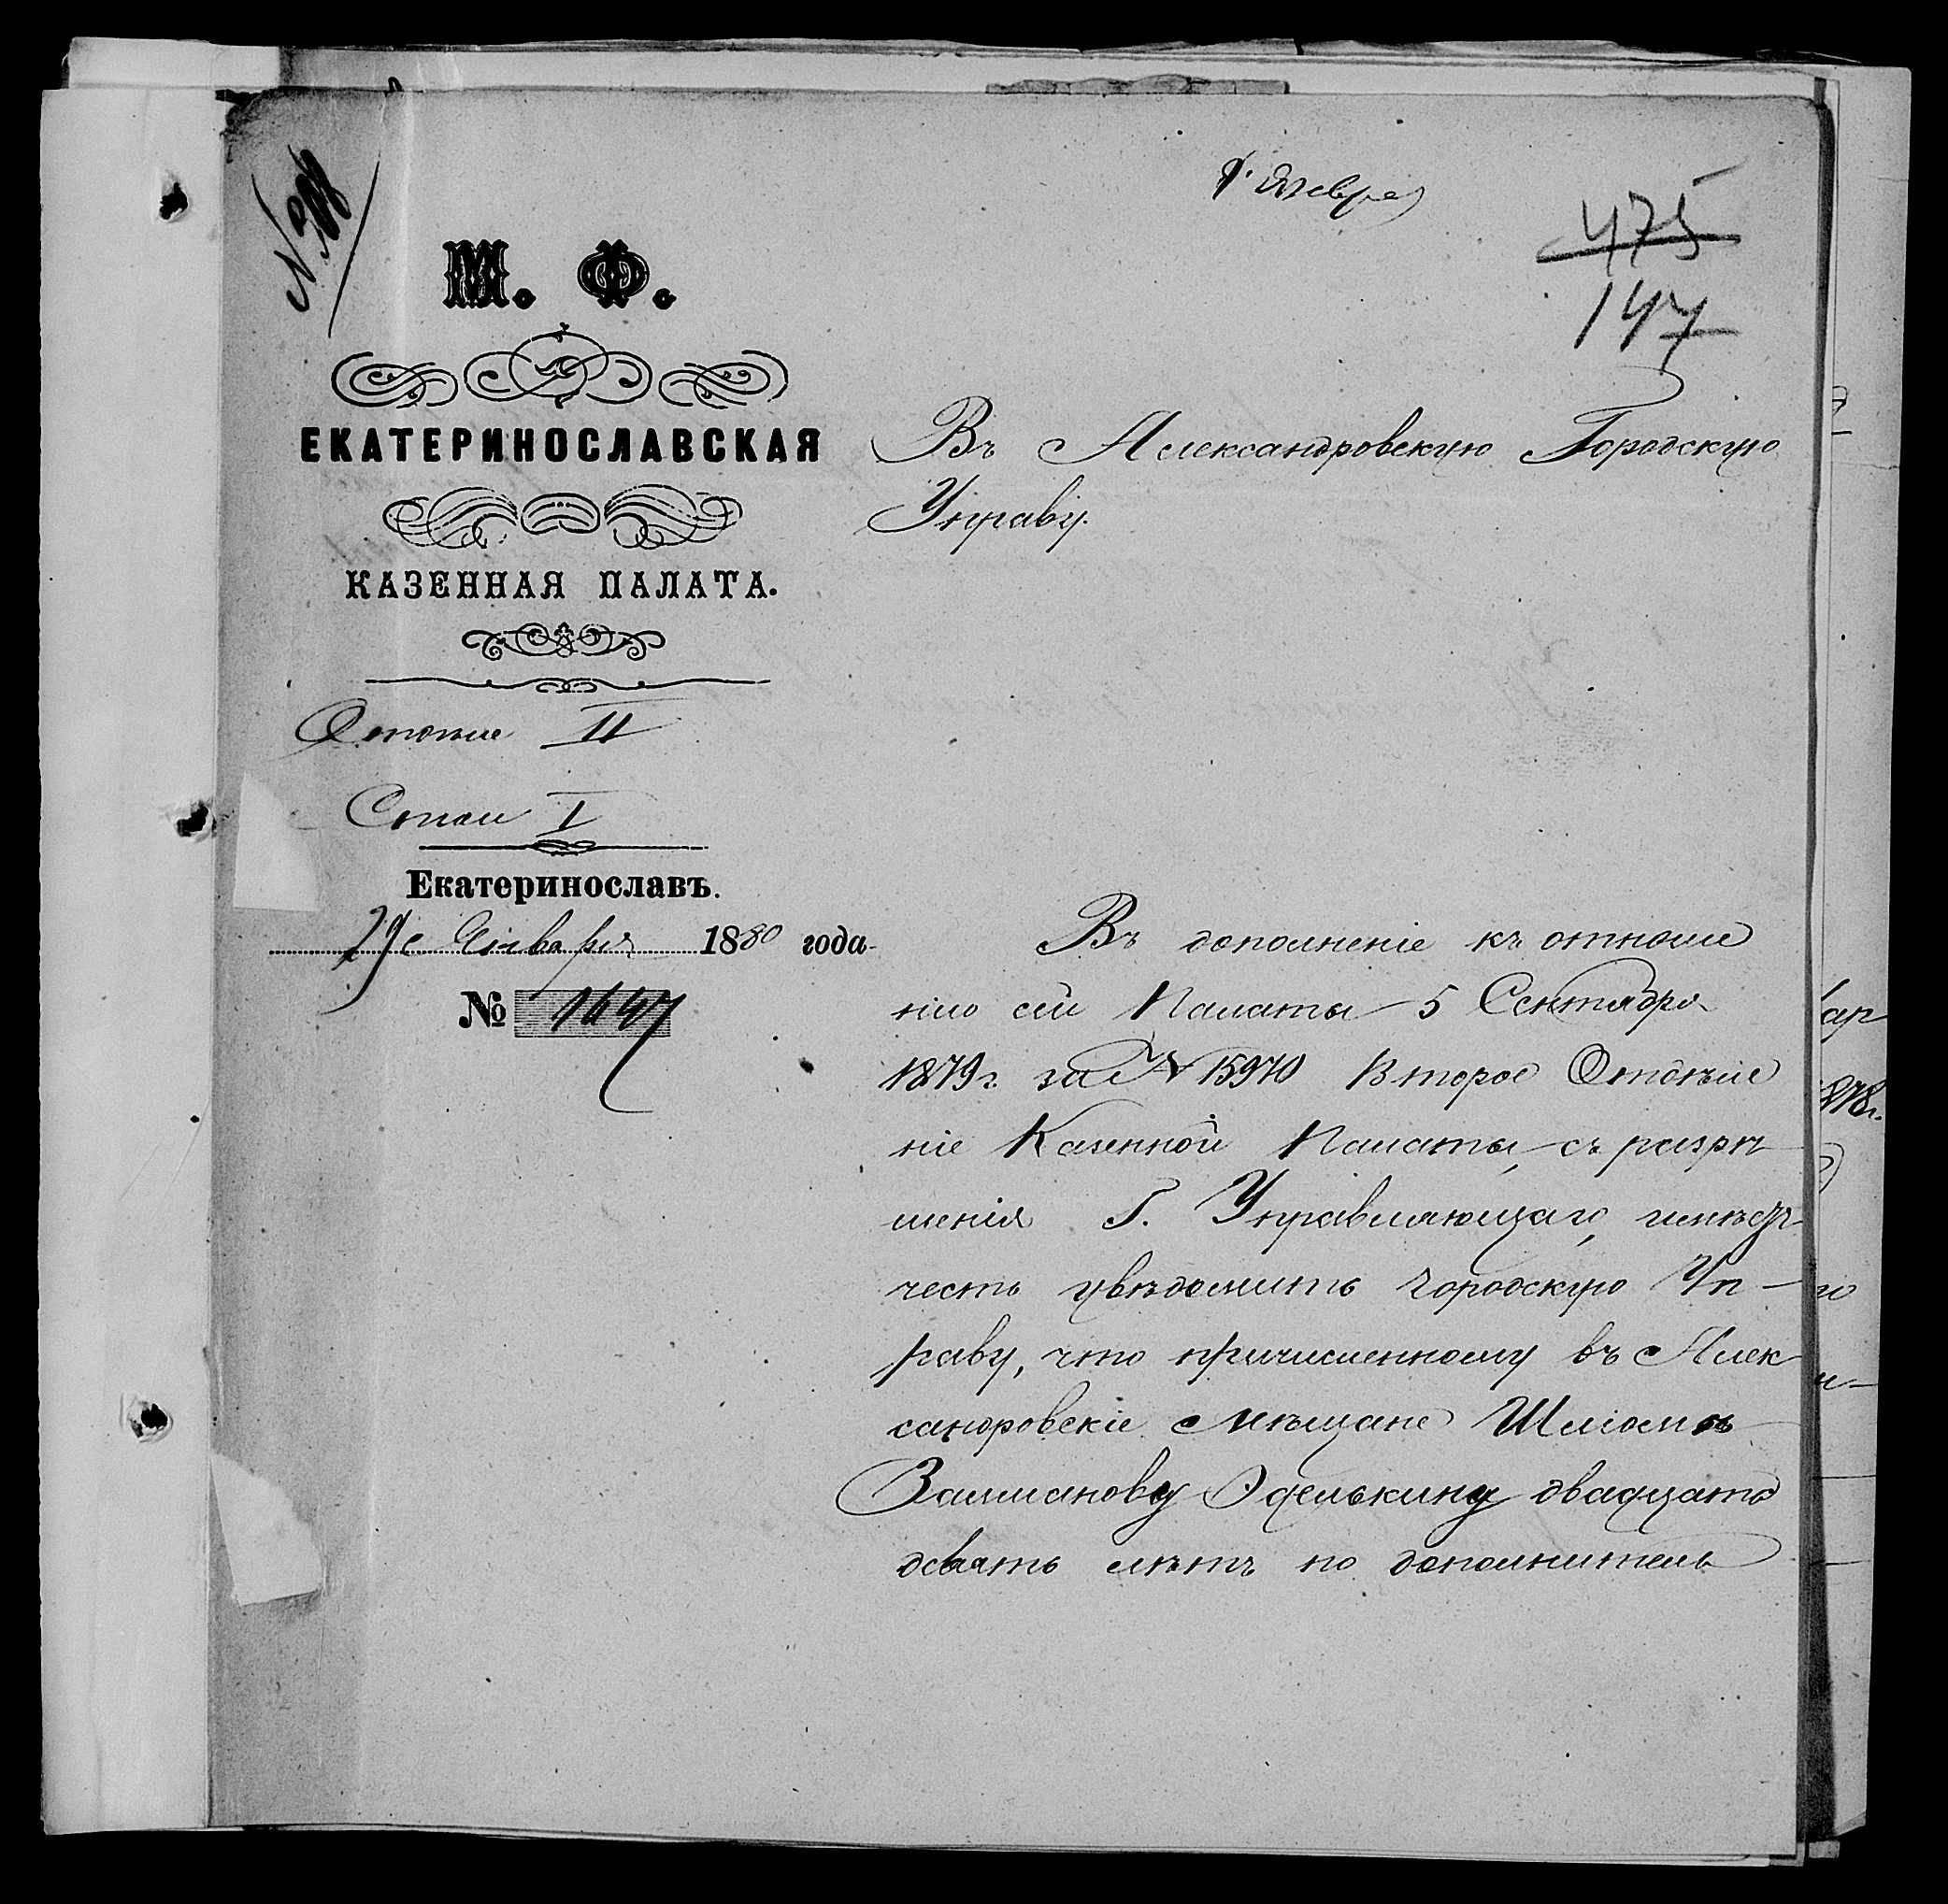 475
147
М. Ф.
ЕКАТЕРИНОСЛАВСКАЯ
КАЗЕННАЯ ПАЛАТА.
Отдѣленіе II
Столъ I
Екатеринославъ.
29 Января 1880 года
№ 1647
Въ Александровскую Городскую
Управу.
Въ дополненіе къ отноше
нію сей Палаты 5 Сентября
1879 г. за № 15970 Второе Отдѣле
ніе Казенной Палаты, съ разрѣ
шенія Г. Управляющаго, имѣетъ
честь увѣдомить Городскую Уп-
раву, что причисленному въ Алек
сандровскіе мѣщане Шліомѣ
Залманову Эделькину двадцать
девять лѣтъ по дополнитель